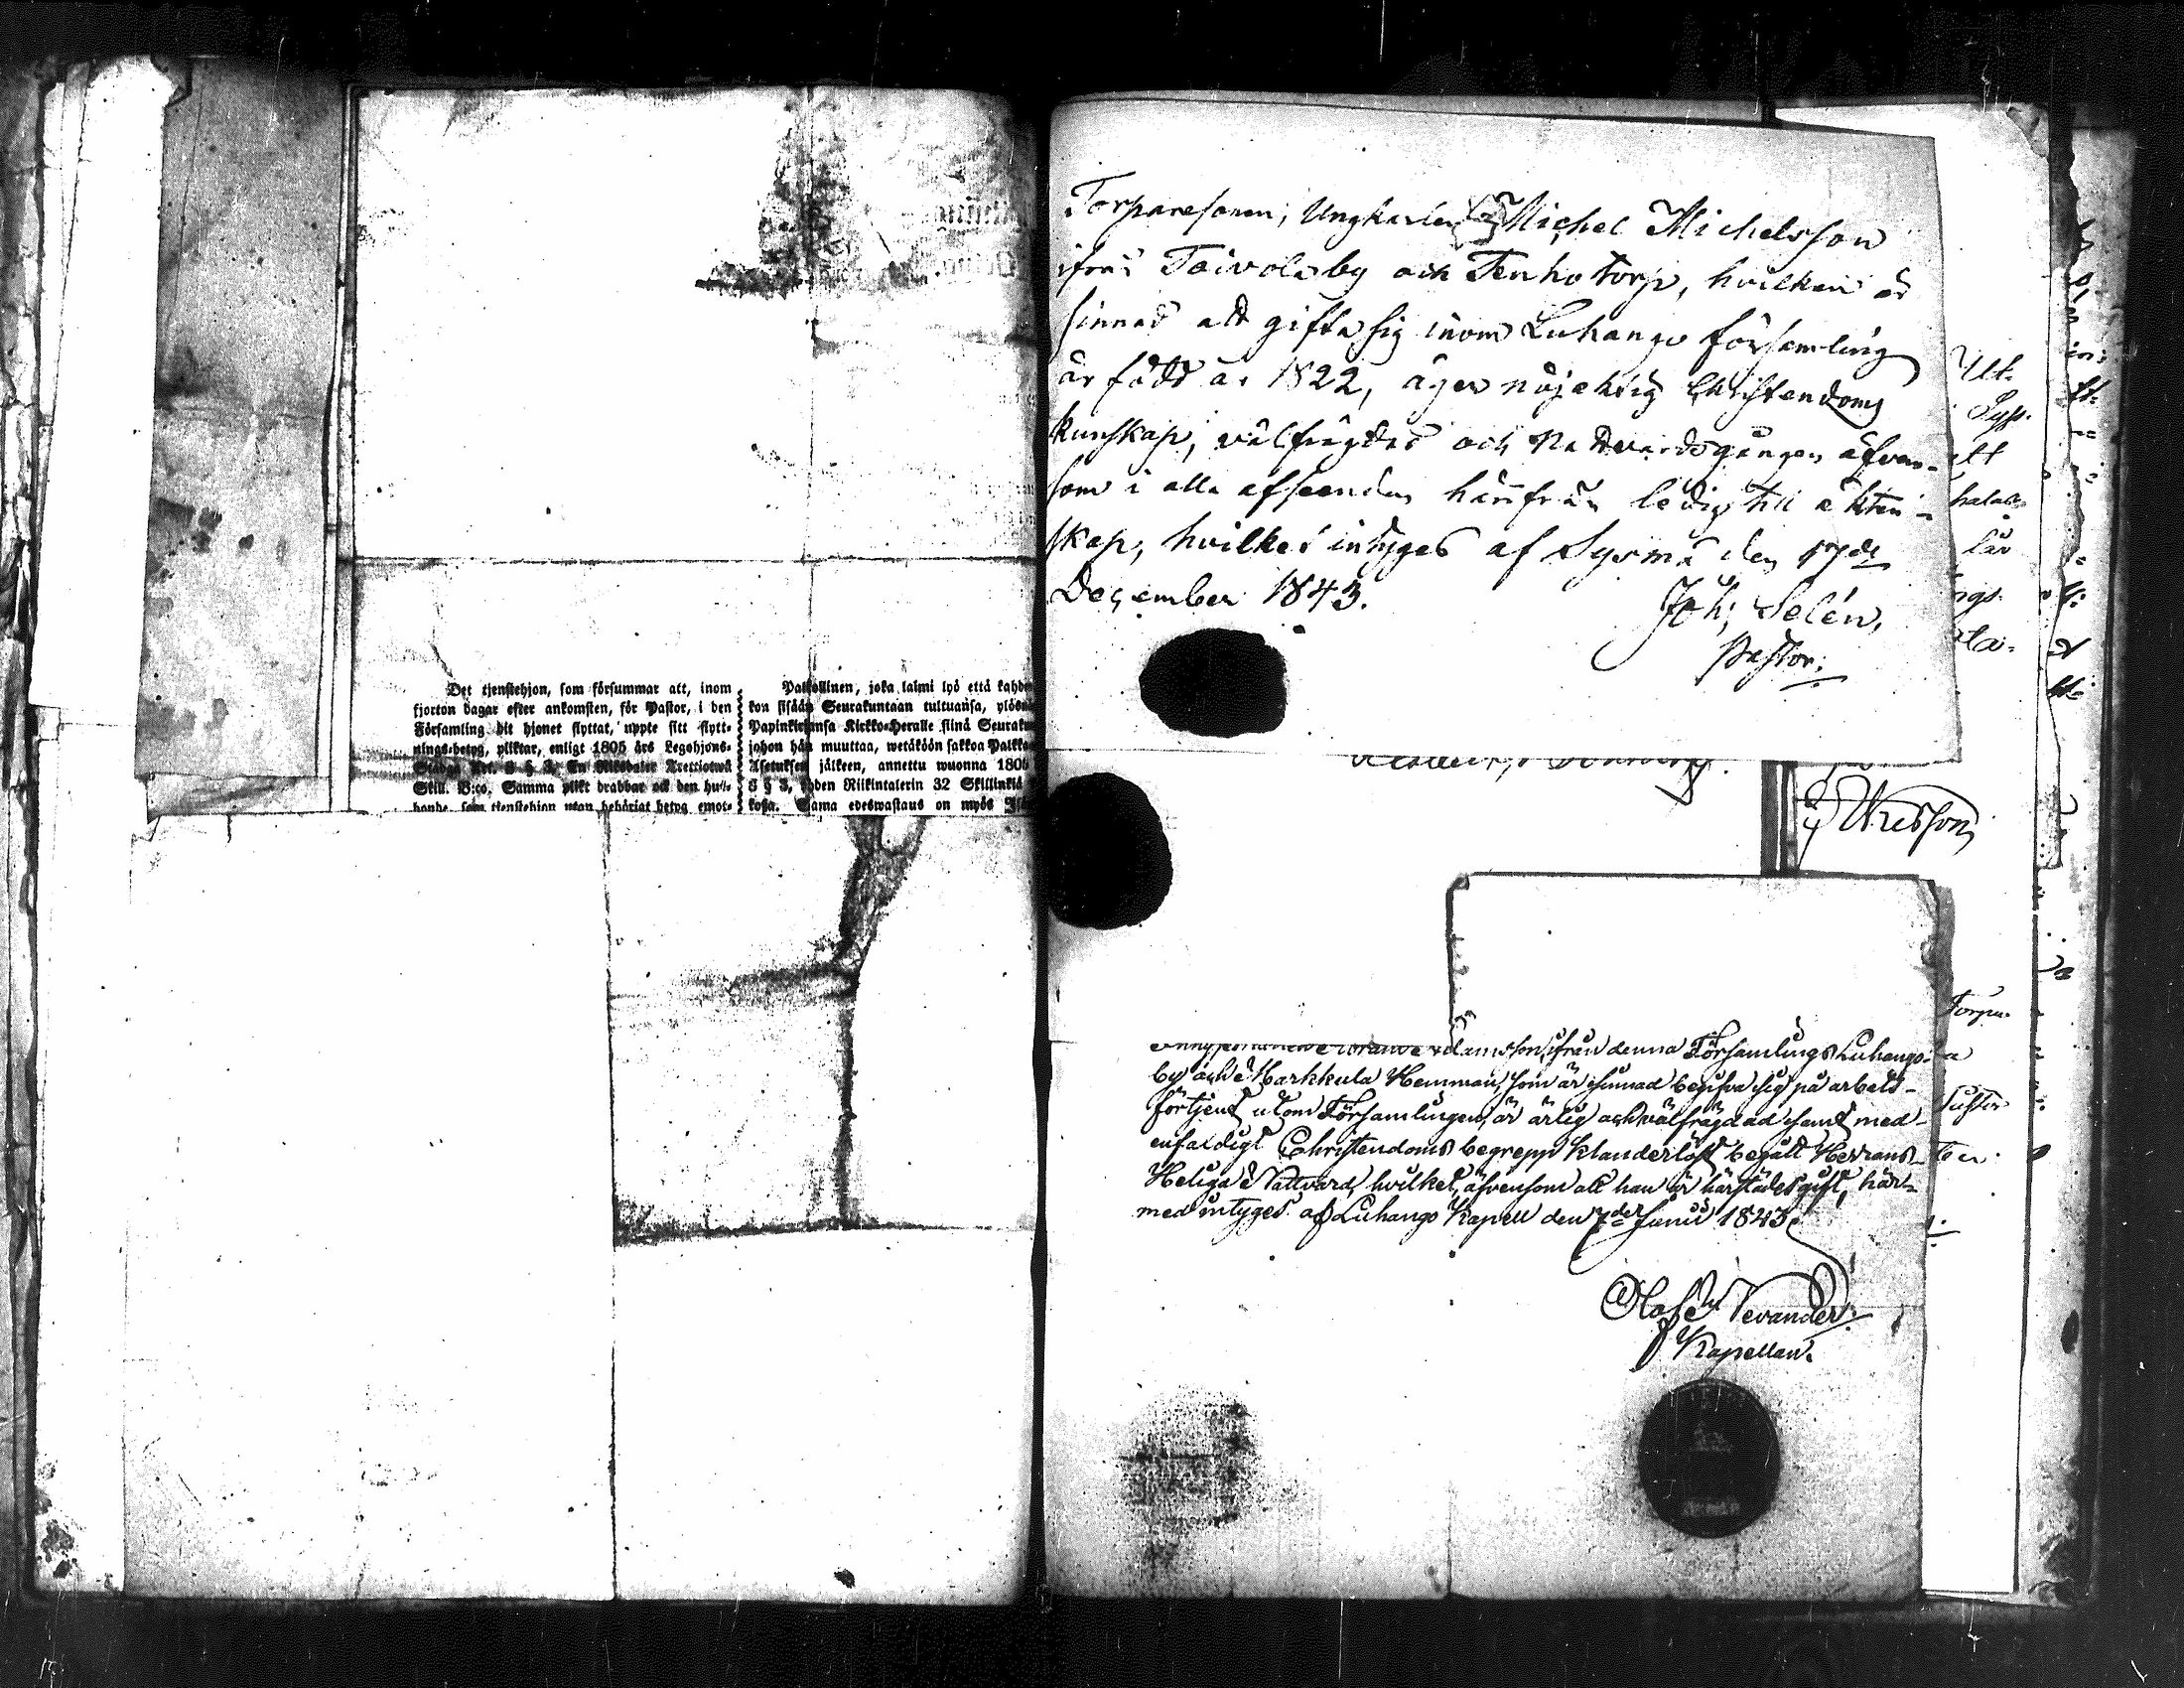 Det tjenstehjon, som försummar att, inom
fjorton dagar efter ankomsten, för Pastor, i den
Församling dit hjonet flyttat, uppte sitt flytt-
nings-betyg, pliktar, enligt 1805 års Legohjons-
Stadga Art. 8 § 3, En Riksdaler Trettiotwå
Skill. B:co. Samma plikt drabbar ock den hus-
bonde, som tjenstehjon utan behörigt betyg emot-
Palkollinen, joka laimi lyö että kahden
kon sisään Seurakuntaan tultuansa, ylös
Papinkirjansa Kirkko-Heralle siinä Seuraku
johon hän muuttaa, wetäköön sakkoa Palkka
Asetuksen jälkeen, annettu wuonna 1805
8 § 3, yhden Riikintalerin 32 Skillinkiä
kossa. Sama edeswastaus on myös
Torparesonen, Ungkarlen Michel Michelsson
ifrån Taivola by och Tenho torp, hvilken är
sinnad att gifta sig inom Luhango församling
är född år 1822, äger nöjaktig Christendoms
kunskap, välfrägdad och Nattvardsgången äfven-
som i alla afseenden härifrån ledig till äkten-
skap, hvilket intyges af Sysmä den 17de
December 1843.
Joh: Selén,
Pastor.
Ut-
Sys-
att
lär
ngs-
ta-
Torpa-
a
ifrån denna Församlings Luhango
by och Markkula Hemman, som är sinnad begifva sig på arbets-
förtjenst utom Församlingen, är ärlig och välfrägdad samt med
enfaldigt Christendoms begrepp klanderlöst begått Herrans
Heliga Nattvard, hvilket, äfvensom att han är härstädes gift, här-
med intyges af Luhango Kapell den 7de Junii 1843.
Olof W Nevander.
Kapellan.